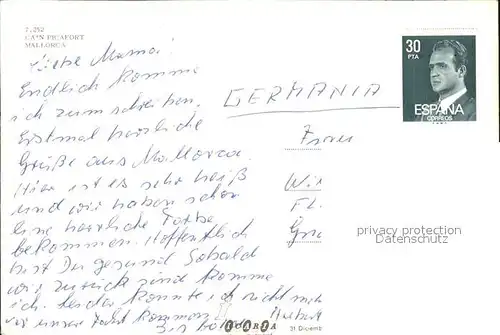 7.252
CA'N PICAFORT
MALLORCA
Liebe Mama!
Endlich komme
ich zum schreiben.
Erstmal herzliche
Grüße aus Mallorca.
Hier ist es sehr heiß
und wir haben schon
eine herrliche Farbe
bekommen. Hoffentlich
bist Du gesund Sobald
wir zurück sind komme
ich. Leider konnte ich nicht mehr
vor unser Fahrt kommen
Bis
GERMANIA
Frau
30
PTA
ESPAÑA
CORREOS
privacy protection
Datenschutz